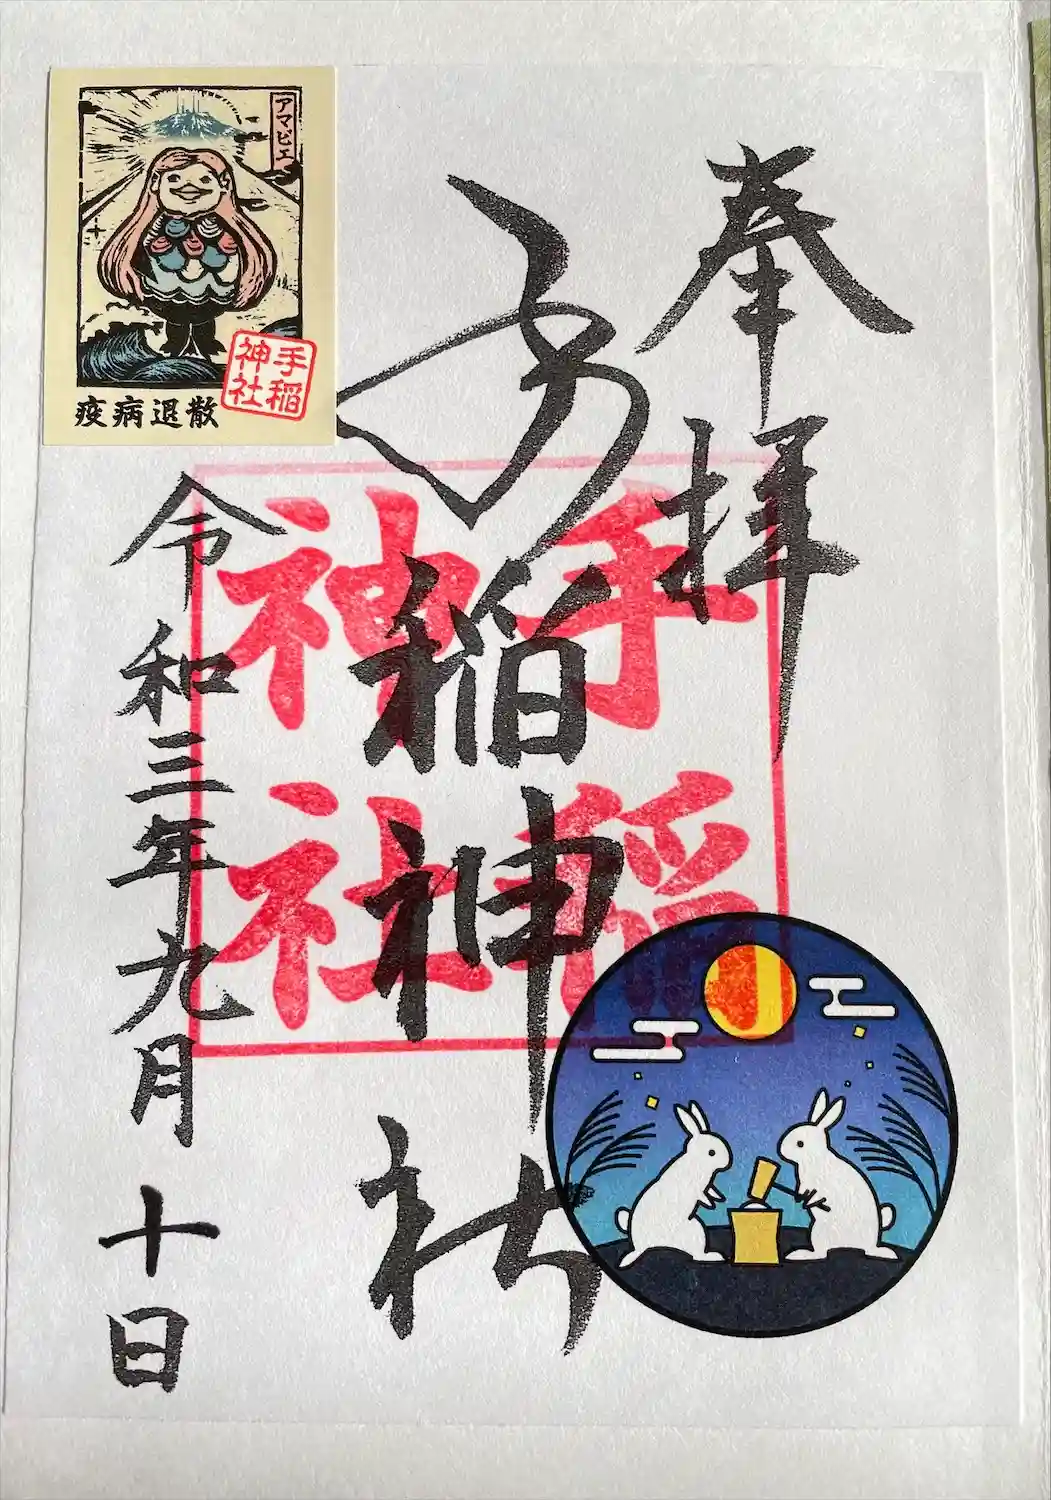 奉拝
手稲神社
手稲
神社
令和三年九月十日
アマビエ
手稲
神社
疫病退散